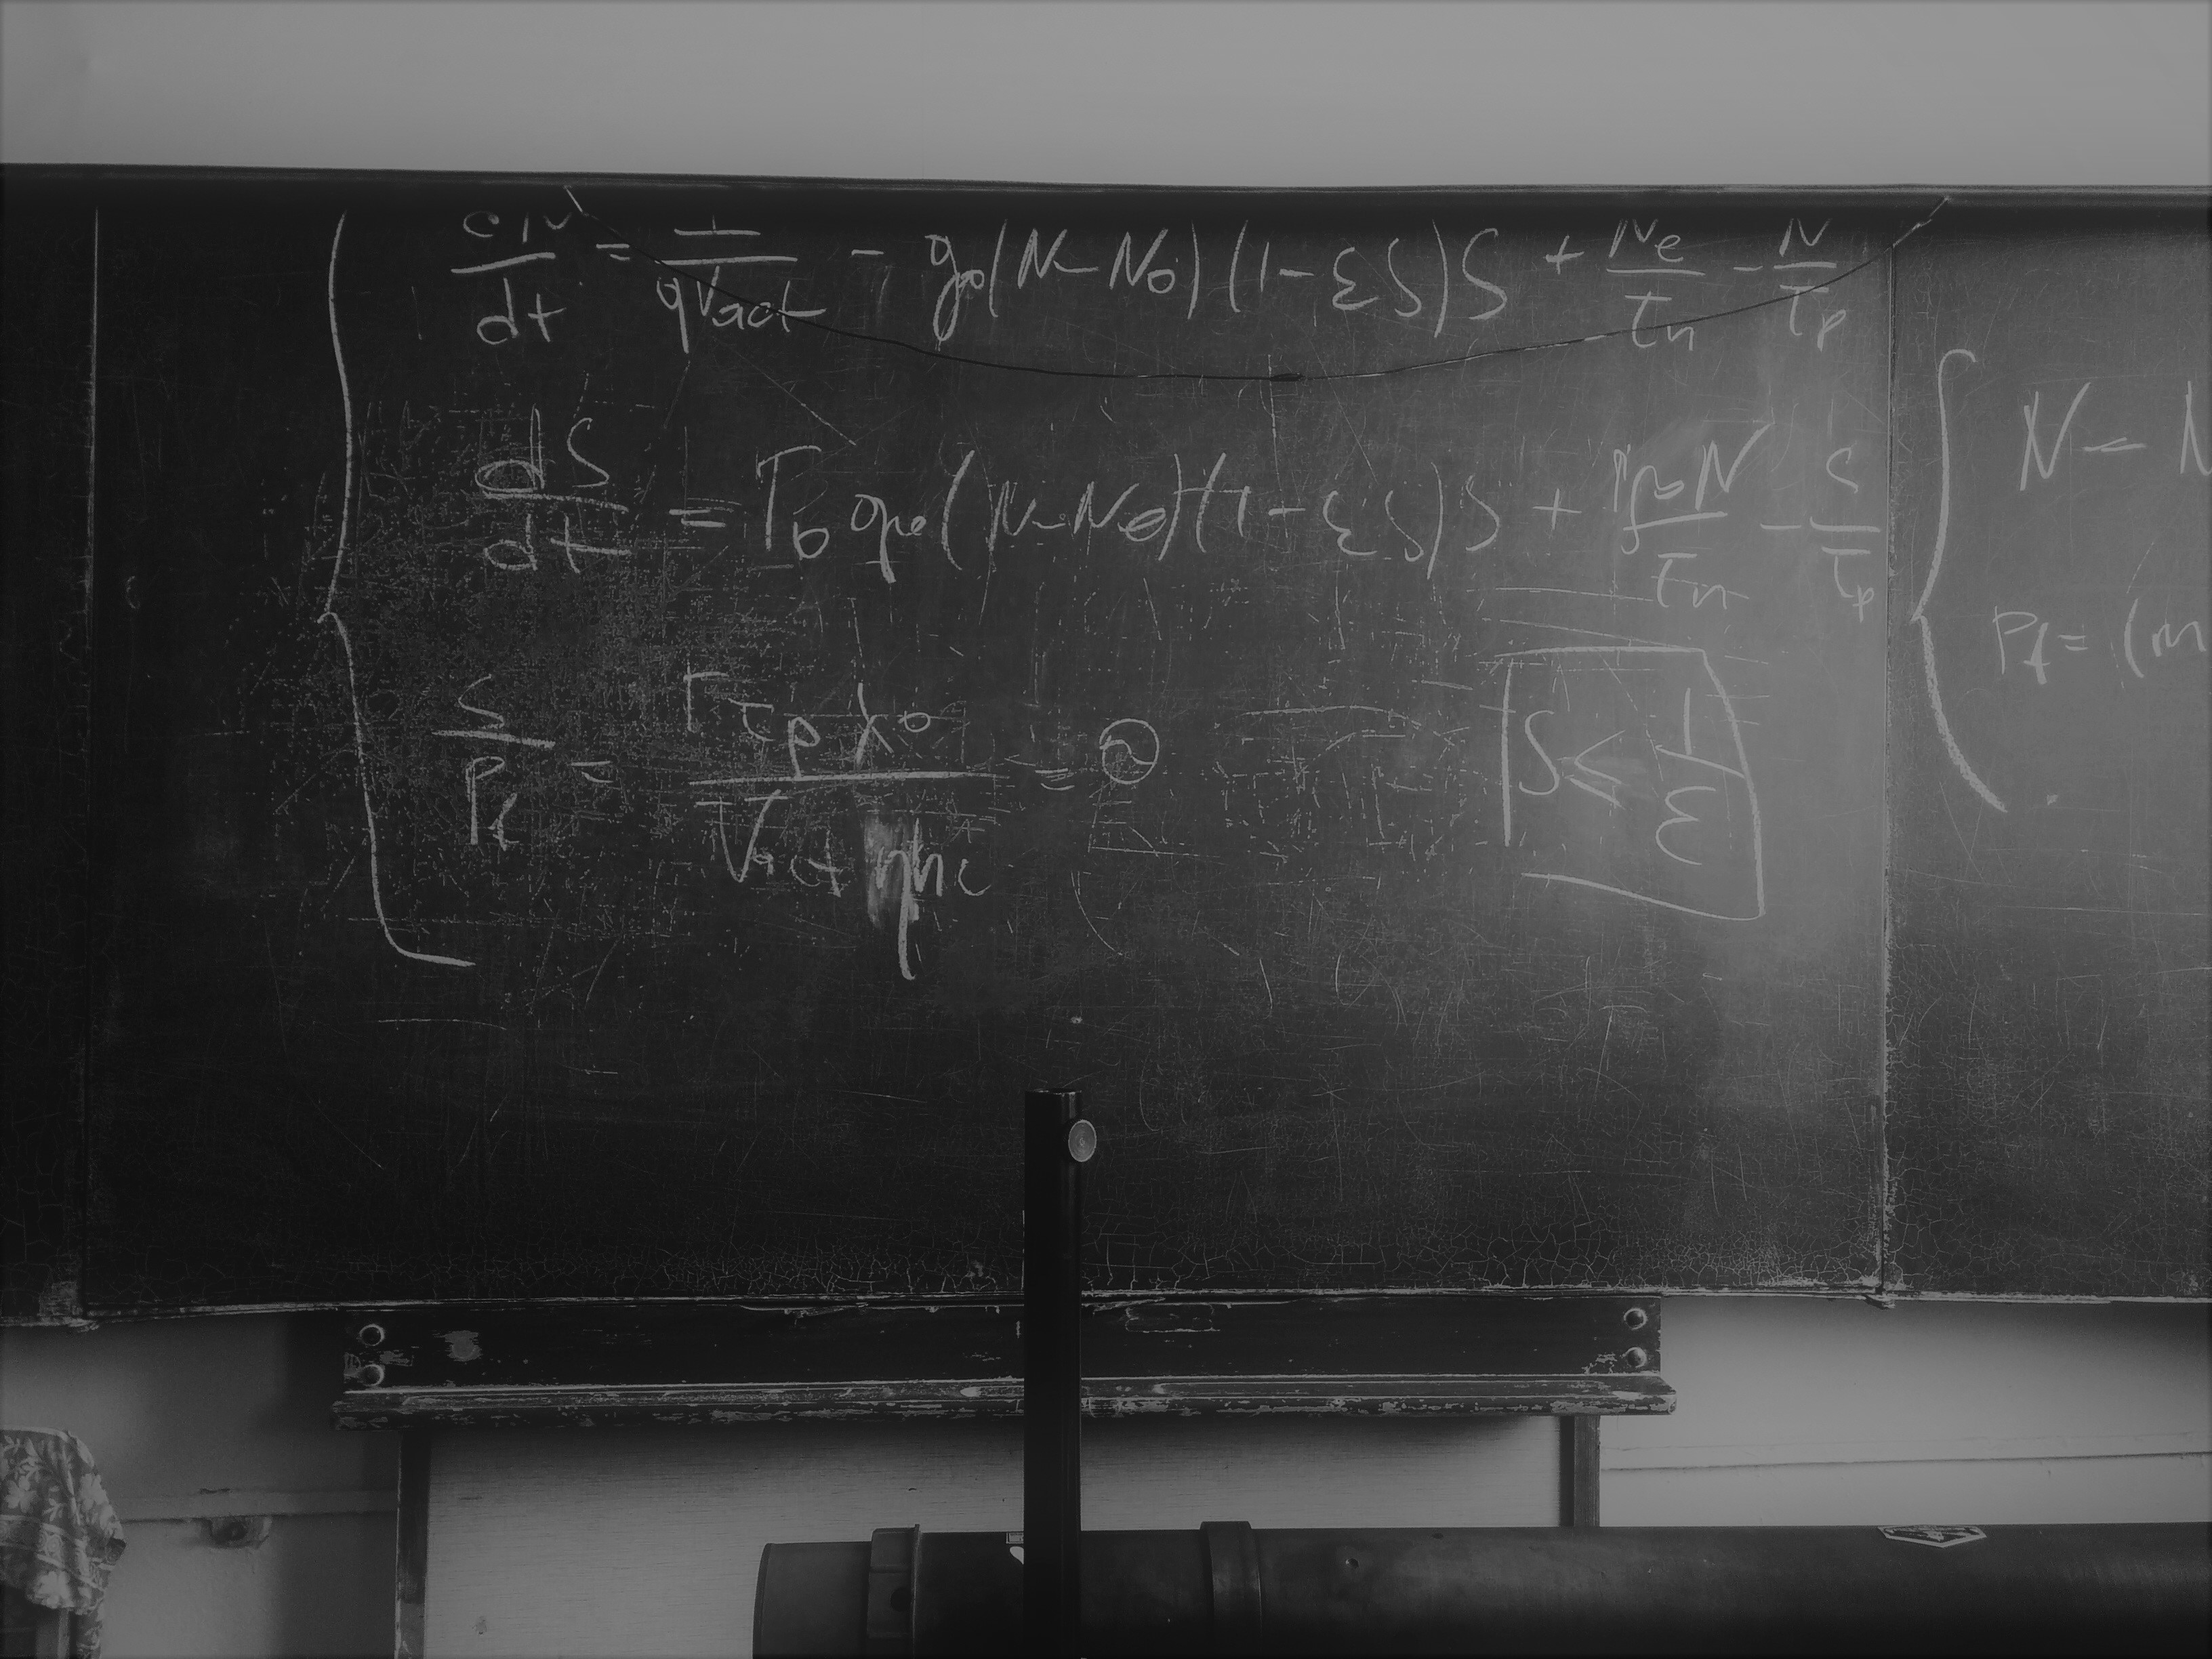 dN/dt = I/qVact - g0(N-N0)(1-εS)S + Ne/τn - N/τp
dS/dt = Γ0 g0(N-N0)(1-εS)S + N/τn - S/τp
S/Pf = Γτpλ0/Vact ηhc = ϑ
S ≤ 1/ε
N - N
Pf = (m